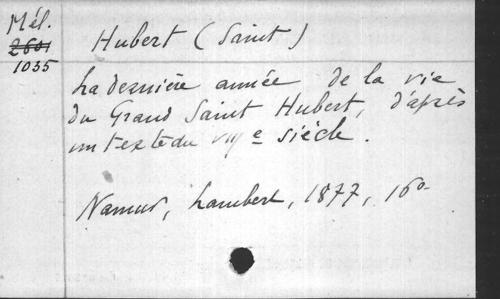 Mél.
2601
1035
Hubert (Saint)
La dernière année de la vie
du Grand Saint Hubert, d'après
un texte du VIIIe siècle.
Namur, Lambert, 1877, 16o